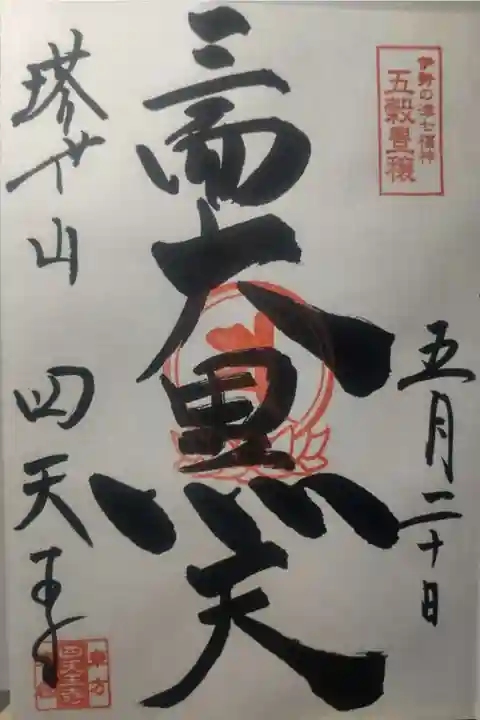 伊勢の津七福神
五穀豊穣
五月二十日
三面大黒天
塔世山 四天王寺
四天王寺